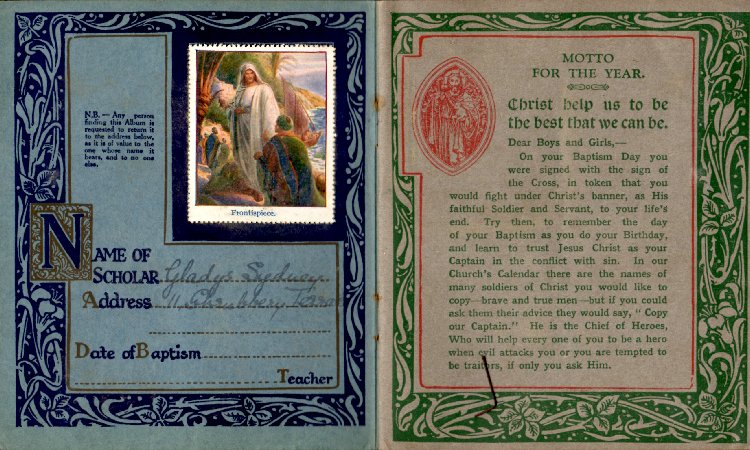 N.B.— Any person
finding this Album is
requested to return it
to the address below,
as it is of value to the
one whose name it
bears, and to no one
else.
Frontispiece.
NAME OF
SCHOLAR Gladys Sydney
Address 11 Shrubbery Terrace
Date of Baptism
Teacher
MOTTO
FOR THE YEAR.
Christ help us to be
the best that we can be.
Dear Boys and Girls,—
On your Baptism Day you
were signed with the sign of
the Cross, in token that you
would fight under Christ's banner, as His
faithful Soldier and Servant, to your life's
end. Try then, to remember the day
of your Baptism as you do your Birthday,
and learn to trust Jesus Christ as your
Captain in the conflict with sin. In our
Church's Calendar there are the names of
many soldiers of Christ you would like to
copy—brave and true men—but if you could
ask them their advice they would say, " Copy
our Captain." He is the Chief of Heroes,
Who will help every one of you to be a hero
when evil attacks you or you are tempted to
be traitors, if only you ask Him.